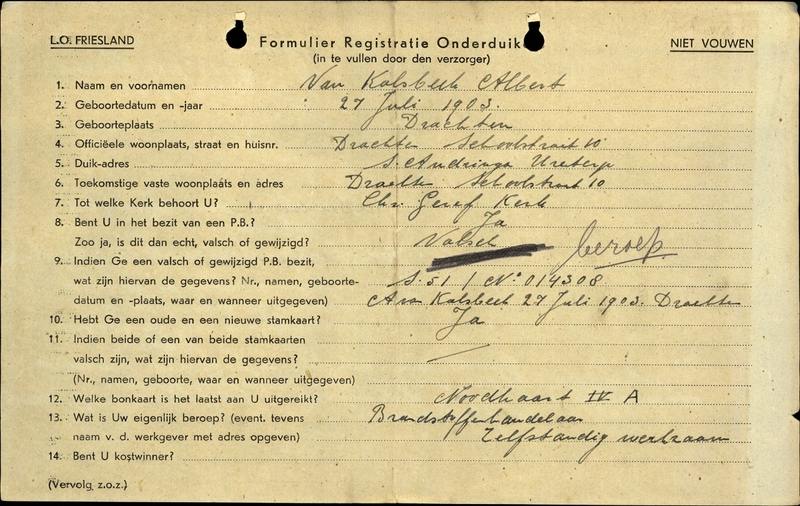 L.O. FRIESLAND
Formulier Registratie Onderduik
NIET VOUWEN
(in te vullen door den verzorger)
1. Naam en voornamen Van Kalsbeek Albert
2. Geboortedatum en -jaar 27 Juli 1903.
3. Geboorteplaats Drachten
4. Officiëele woonplaats, straat en huisnr. Drachten Schoolstraat 10
5. Duik-adres S. Andringa Ureterp
6. Toekomstige vaste woonplaats en adres Drachten Schoolstraat 10
7. Tot welke Kerk behoort U? Chr. Geref Kerk
8. Bent U in het bezit van een P.B.? Ja
Zoo ja, is dit dan echt, valsch of gewijzigd? Valsch beroep
9. Indien Ge een valsch of gewijzigd P.B. bezit,
wat zijn hiervan de gegevens? Nr., namen, geboorte- S. 51 / No 014308
datum en -plaats, waar en wanneer uitgegeven) Kalsbeek 27 Juli 1903. Drachten
10. Hebt Ge een oude en een nieuwe stamkaart? Ja
11. Indien beide of een van beide stamkaarten
valsch zijn, wat zijn hiervan de gegevens?
(Nr., namen, geboorte, waar en wanneer uitgegeven)
12. Welke bonkaart is het laatst aan U uitgereikt? Noodkaart IV A
13. Wat is Uw eigenlijk beroep? (event. tevens Brandstoffenhandelaar
naam v. d. werkgever met adres opgeven) Zelfstandig werkzaam
14. Bent U kostwinner?
(Vervolg z.o.z.)